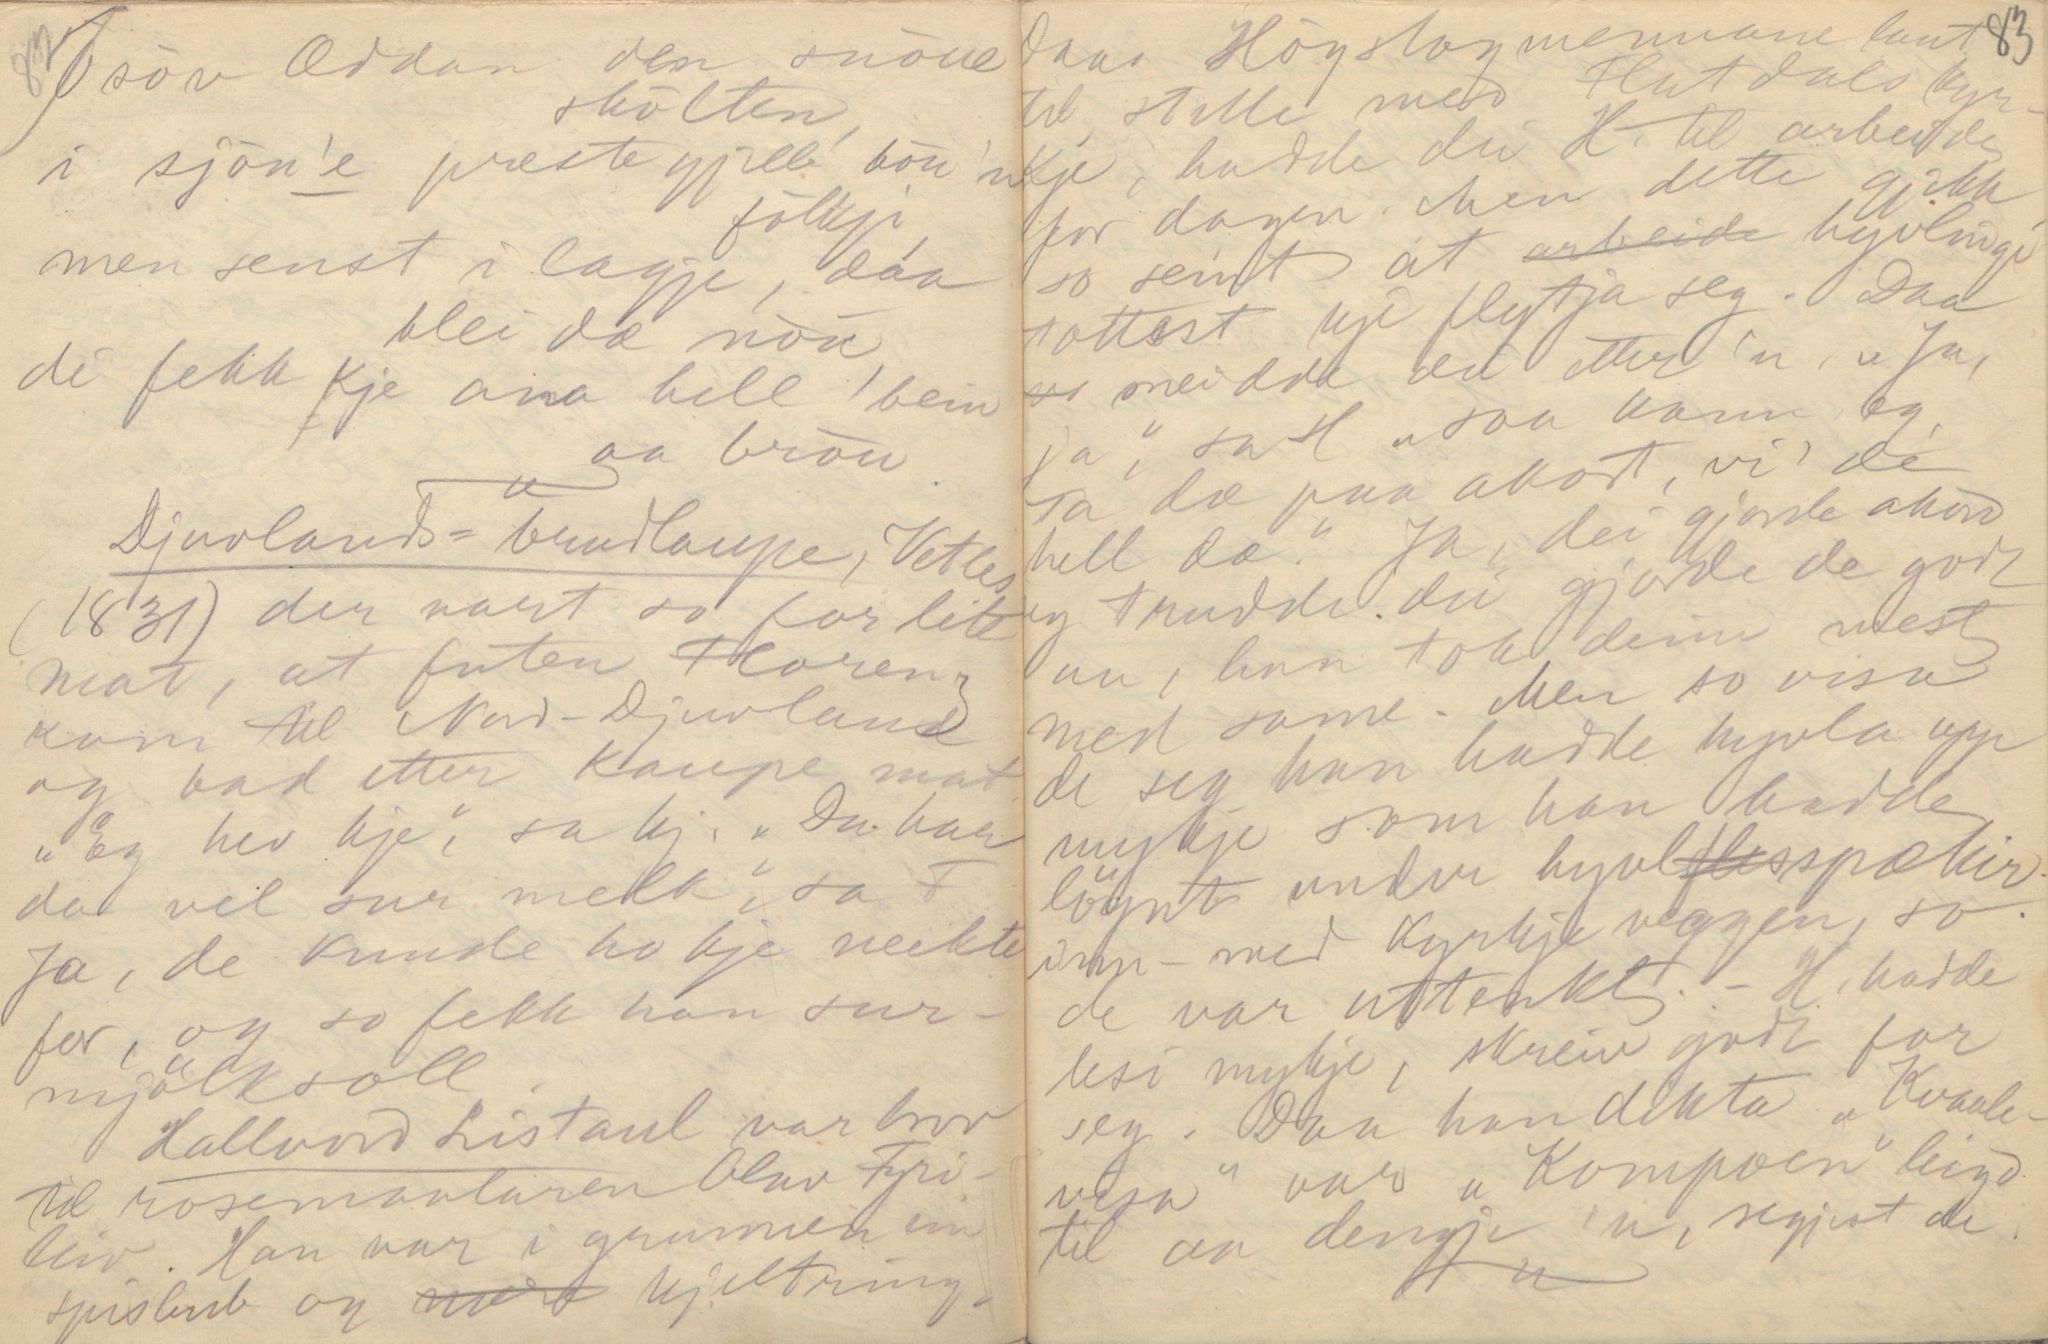 82
I söv Øddan den snöue
skölten,
i sjön'e prestegjelle' böu'n
fölkji,
men senst i lagje, daa
blei dæ nöu,
di fekk kje ana hell' bein
aa bröu.
Djuvlands-brudlaupe, Vetles
(1831) der vart so for lite
mat, at futen Florenz
kom til Nord-Djuvland
og bad etter kaupe mat
"Eg hev kje", sa kj. "Du haar
da vel sur melk", sa F
Ja, de kunde ho kje neikte
for, og so fekk han sur-
mjölksoll.
Hallvord Listaul var bror
til rosemaalaren Olav Fyri-
leiv. Han var i grunnen ein
spisbub og kjeltring.
83
Daa Högslogmennane laut
til, stelle med Flatdals kyr-
kje, hadde dei H. til arbeide
for dagen. Men dette gjekk
so seint at arbeide hyvlingi
tottest kje flytja seg. Daa
so meidde dei etter 'n, "Ja,
ja", sa H "saa kann eg,
ta dæ paa akort, vi' de
hell dæ." Ja, dei gjorde akord
og trudde dei gjorde de godt
nu, han tok deim mest
med same. Men so visa
de seg han hadde hyvla upp
mykje som han hadde
löynt under hyvlflisspækir
inn-med kyrkjeveggen, so
de var uttenkt. - H. hadde
lesi mykje, skreiv godt for
seg. Daa han dikta "Kvaale-
visa" var "Kompoen" leigd
til aa dengje 'n, segjest de.